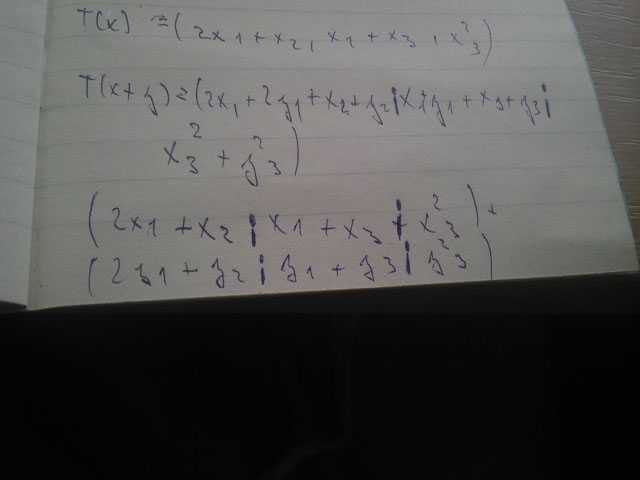 T(x) = (2x₁ + x₂, x₁ + x₃, x₃²)
T(x+y) = (2x₁ + 2y₁ + x₂ + y₂; x₁ + y₁ + x₃ + y₃;
x₃² + y₃²)
(2x₁ + x₂; x₁ + x₃; x₃²) +
(2y₁ + y₂; y₁ + y₃; y₃²)